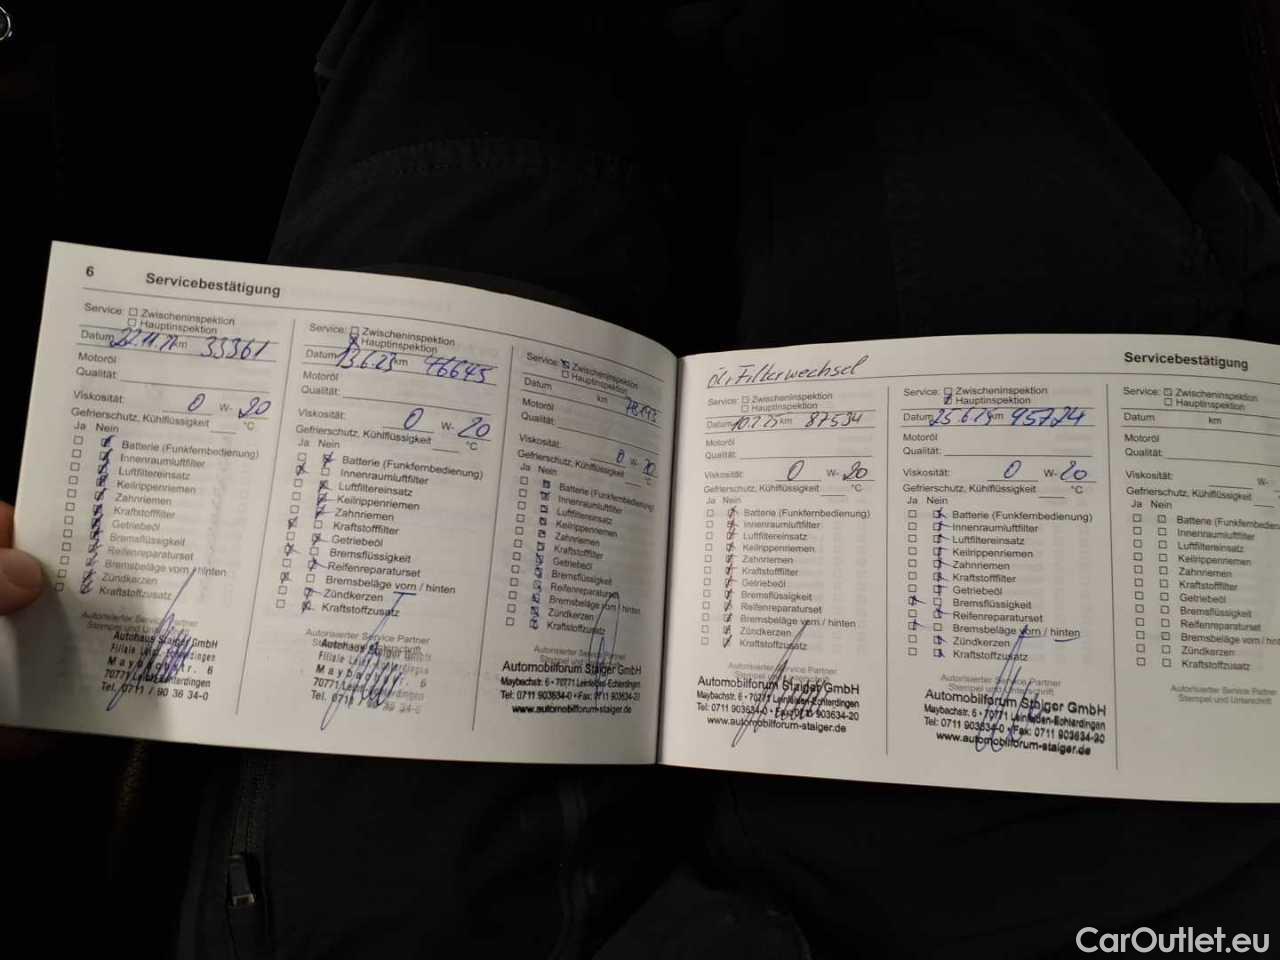 6 Servicebestätigung
Service: Zwischeninspektion
Hauptinspektion
Datum 22.11.21 km 33361
Motoröl
Qualität:
Viskosität: 0 W- 20
Gefrierschutz, Kühlflüssigkeit °C
Ja Nein
Batterie (Funkfernbedienung)
Innenraumluftfilter
Luftfiltereinsatz
Keilrippenriemen
Zahnriemen
Kraftstofffilter
Getriebeöl
Bremsflüssigkeit
Reifenreparaturset
Bremsbeläge vorn / hinten
Zündkerzen
Kraftstoffzusatz
Autorisierter Service Partner
Stempel und Unterschrift
Autohaus Staiger GmbH
Filiale Leinf.-Echterdingen
Maybachstr. 6
70771 Leinfelden-Echterdingen
Tel. 0711 / 90 36 34-0
Service: Zwischeninspektion
Hauptinspektion
Datum 13.6.23 km
Motoröl
Qualität:
Viskosität: 0 W- 20
Gefrierschutz, Kühlflüssigkeit °C
Ja Nein
Batterie (Funkfernbedienung)
Innenraumluftfilter
Luftfiltereinsatz
Keilrippenriemen
Zahnriemen
Kraftstofffilter
Getriebeöl
Bremsflüssigkeit
Reifenreparaturset
Bremsbeläge vorn / hinten
Zündkerzen
Kraftstoffzusatz
Autorisierter Service Partner
Autohaus Staiger GmbH
Maybachstr. 6
70771
Service: Zwischeninspektion
Hauptinspektion
Datum km 78193
Motoröl
Qualität:
Viskosität: 0 W- 20
Gefrierschutz, Kühlflüssigkeit °C
Ja Nein
Batterie (Funkfernbedienung)
Innenraumluftfilter
Luftfiltereinsatz
Keilrippenriemen
Zahnriemen
Kraftstofffilter
Getriebeöl
Bremsflüssigkeit
Reifenreparaturset
Bremsbeläge vorn / hinten
Zündkerzen
Kraftstoffzusatz
Automobilforum Staiger GmbH
Maybachstr. 6 • 70771 Leinfelden-Echterdingen
Tel: 0711 903634-0 • Fax: 0711 903634-20
www.automobilforum-staiger.de
Servicebestätigung
Öl + Filterwechsel
Service: Zwischeninspektion
Hauptinspektion
Datum 10.2.25 km 87534
Motoröl
Qualität:
Viskosität: 0 W- 20
Gefrierschutz, Kühlflüssigkeit °C
Ja Nein
Batterie (Funkfernbedienung)
Innenraumluftfilter
Luftfiltereinsatz
Keilrippenriemen
Zahnriemen
Kraftstofffilter
Getriebeöl
Bremsflüssigkeit
Reifenreparaturset
Bremsbeläge vorn / hinten
Zündkerzen
Kraftstoffzusatz
Autorisierter Service Partner
Stempel und Unterschrift
Automobilforum Staiger GmbH
Maybachstr. 6 • 70771 Leinfelden-Echterdingen
Tel: 0711 903634-0 • Fax: 0711 903634-20
www.automobilforum-staiger.de
Service: Zwischeninspektion
Hauptinspektion
Datum km 95724
Motoröl
Qualität:
Viskosität: 0 W- 20
Gefrierschutz, Kühlflüssigkeit °C
Ja Nein
Batterie (Funkfernbedienung)
Innenraumluftfilter
Luftfiltereinsatz
Keilrippenriemen
Zahnriemen
Kraftstofffilter
Getriebeöl
Bremsflüssigkeit
Reifenreparaturset
Bremsbeläge vorn / hinten
Zündkerzen
Kraftstoffzusatz
Autorisierter Service Partner
Stempel und Unterschrift
Automobilforum Staiger GmbH
Maybachstr. 6 • 70771 Leinfelden-Echterdingen
Tel: 0711 903634-0 • Fax: 0711 903634-20
www.automobilforum-staiger.de
Service: Zwischeninspektion
Hauptinspektion
Datum km
Motoröl
Qualität:
Viskosität: W-
Gefrierschutz, Kühlflüssigkeit
Ja Nein
Batterie (Funkfernbedien
Innenraumluftfilter
Luftfiltereinsatz
Keilrippenriemen
Zahnriemen
Kraftstofffilter
Getriebeöl
Bremsflüssigkeit
Reifenreparaturset
Bremsbeläge vorn / hinten
Zündkerzen
Kraftstoffzusatz
Autorisierter Service Partner
Stempel und Unterschrift
CarOutlet.eu